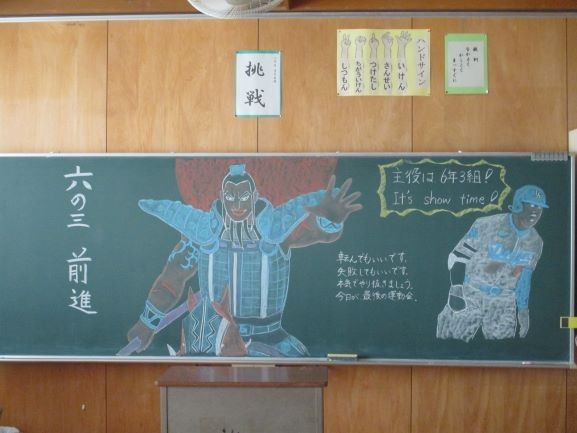 挑戦
ハンドサイン
いけん
さんせい
つけたし
ちがういけん
しつもん
六の三 前進
主役は6年3組!
It's show time!
転んでもいいです。
失敗してもいいです。
本気でやり抜きましょう。
今日が、最後の運動会。